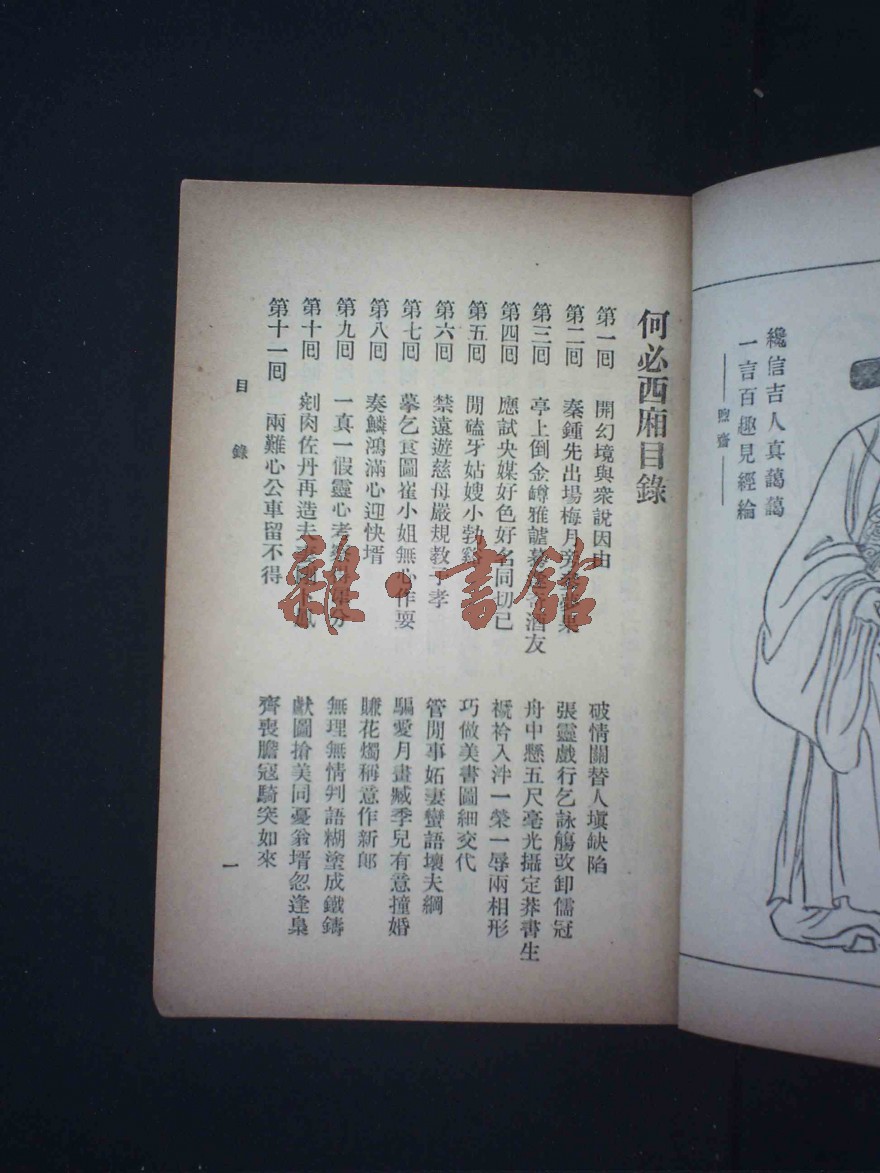 纔信吉人真藹藹
一言百趣見經綸
——煦齋——
何必西廂目錄
第一囘 開幻境與衆說因由 破情關替人塡缺陷
第二囘 秦鍾先出場梅月 張靈戲行乞詠觴改卸儒冠
第三囘 亭上倒金罇雅謔 酒友 舟中懸五尺毫光攝定莽書生
第四囘 應試央媒好色好名同切己 襪衿入泮一榮一辱兩相形
第五囘 閒磕牙姑嫂小勃谿 巧做美書圖細交代
第六囘 禁遠遊慈母嚴規教子孝 管閒事妬妻蠻語壞夫綱
第七囘 摹乞食圖崔小姐無心作耍 騙愛月畫臧季兒有意撞婚
第八囘 奏鱗鴻滿心迎快壻 賺花燭稱意作新郞
第九囘 一真一假靈心考 分 無理無情判語糊塗成鐵鑄
第十囘 剜肉佐丹再造夫 獻圖搶美同憂翁壻忽逢梟
第十一囘 兩難心公車留不得 齊喪膽冦騎突如來
目錄
一
雜·書館